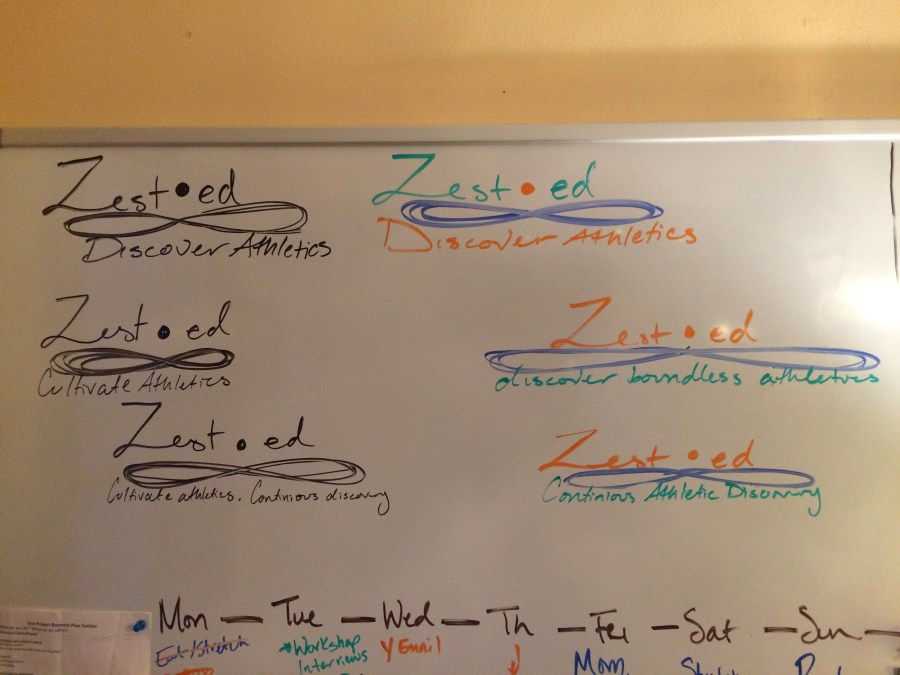 Zest • ed
Discover Athletics
Zest • ed
Discover Athletics
Zest • ed
Cultivate Athletics
Zest • ed
discover boundless athletics
Zest • ed
Cultivate athletics. Continious discovery
Zest • ed
Continious Athletic Discovery
Mon — Tue — Wed — Th — Fri — Sat — Sun —
Eat/Stretch
Workshop
Interviews
Y Email
Mom